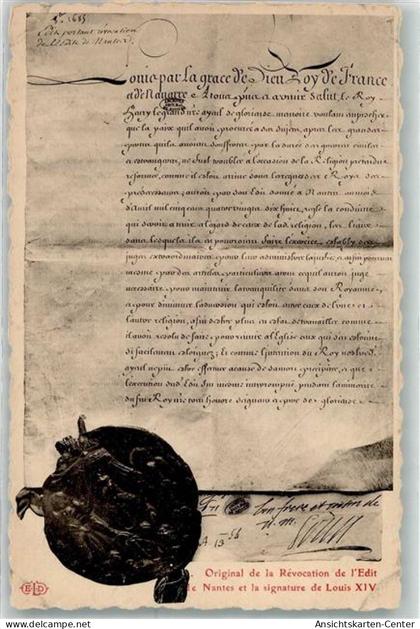 8bre 1685
Edit portant revocation
de l'Edit de Nantes
Louis par la grace de Dieu Roy de France
et de Navarre A tous p̄ns et avenir Salut, le Roy
Henry le grand n̄re ayeul de glorieuse memoire voulant empescher
que la paix qu'il avoit procurée a ses Sujets, apres les grandes
pertes qu'ils avoient souffertes par la durée des guerres civiles
et estrangeres, ne fust troublée a l'occasion de la Religion pretendue
reformée, comme il estoit arrivé sous les regnes des Roys ses
predecesseurs, auroit par son Edit donné a Nantes au mois
d'Avril mil cinq cens quatre vingts dix huict, reglé la conduite
qui devoit a tenir a l'egard de ceux de lad. religion, les lieux
dans lesquels ils en pourroient faire l'exercice, estably des
juges extraordinaires pour leur administrer la justice, et enfin pourveu
mesme par des articles particuliers a tout ce qu'il auroit jugé
necessaire pour maintenir la tranquilité dans son Royaume
et pour diminuer l'aversion qui estoit entre ceux de l'une et
l'autre religion, afin d'estre plus en estat de travailler comme
il avoit resolu de faire pour reunir a l'Eglise ceux qui s'en estoient
si facilement esloignez; Et comme l'intention du Roy nostred.
ayeul ne put estre effectuée a cause de sa mort precipitée, et que
l'execution dud. Edit fut mesme interrompue pendant la minorité
du feu Roy
Louis
Original de la Révocation de l'Edit
de Nantes et la signature de Louis XIV
ELD
www.ansichtskarten-center.de